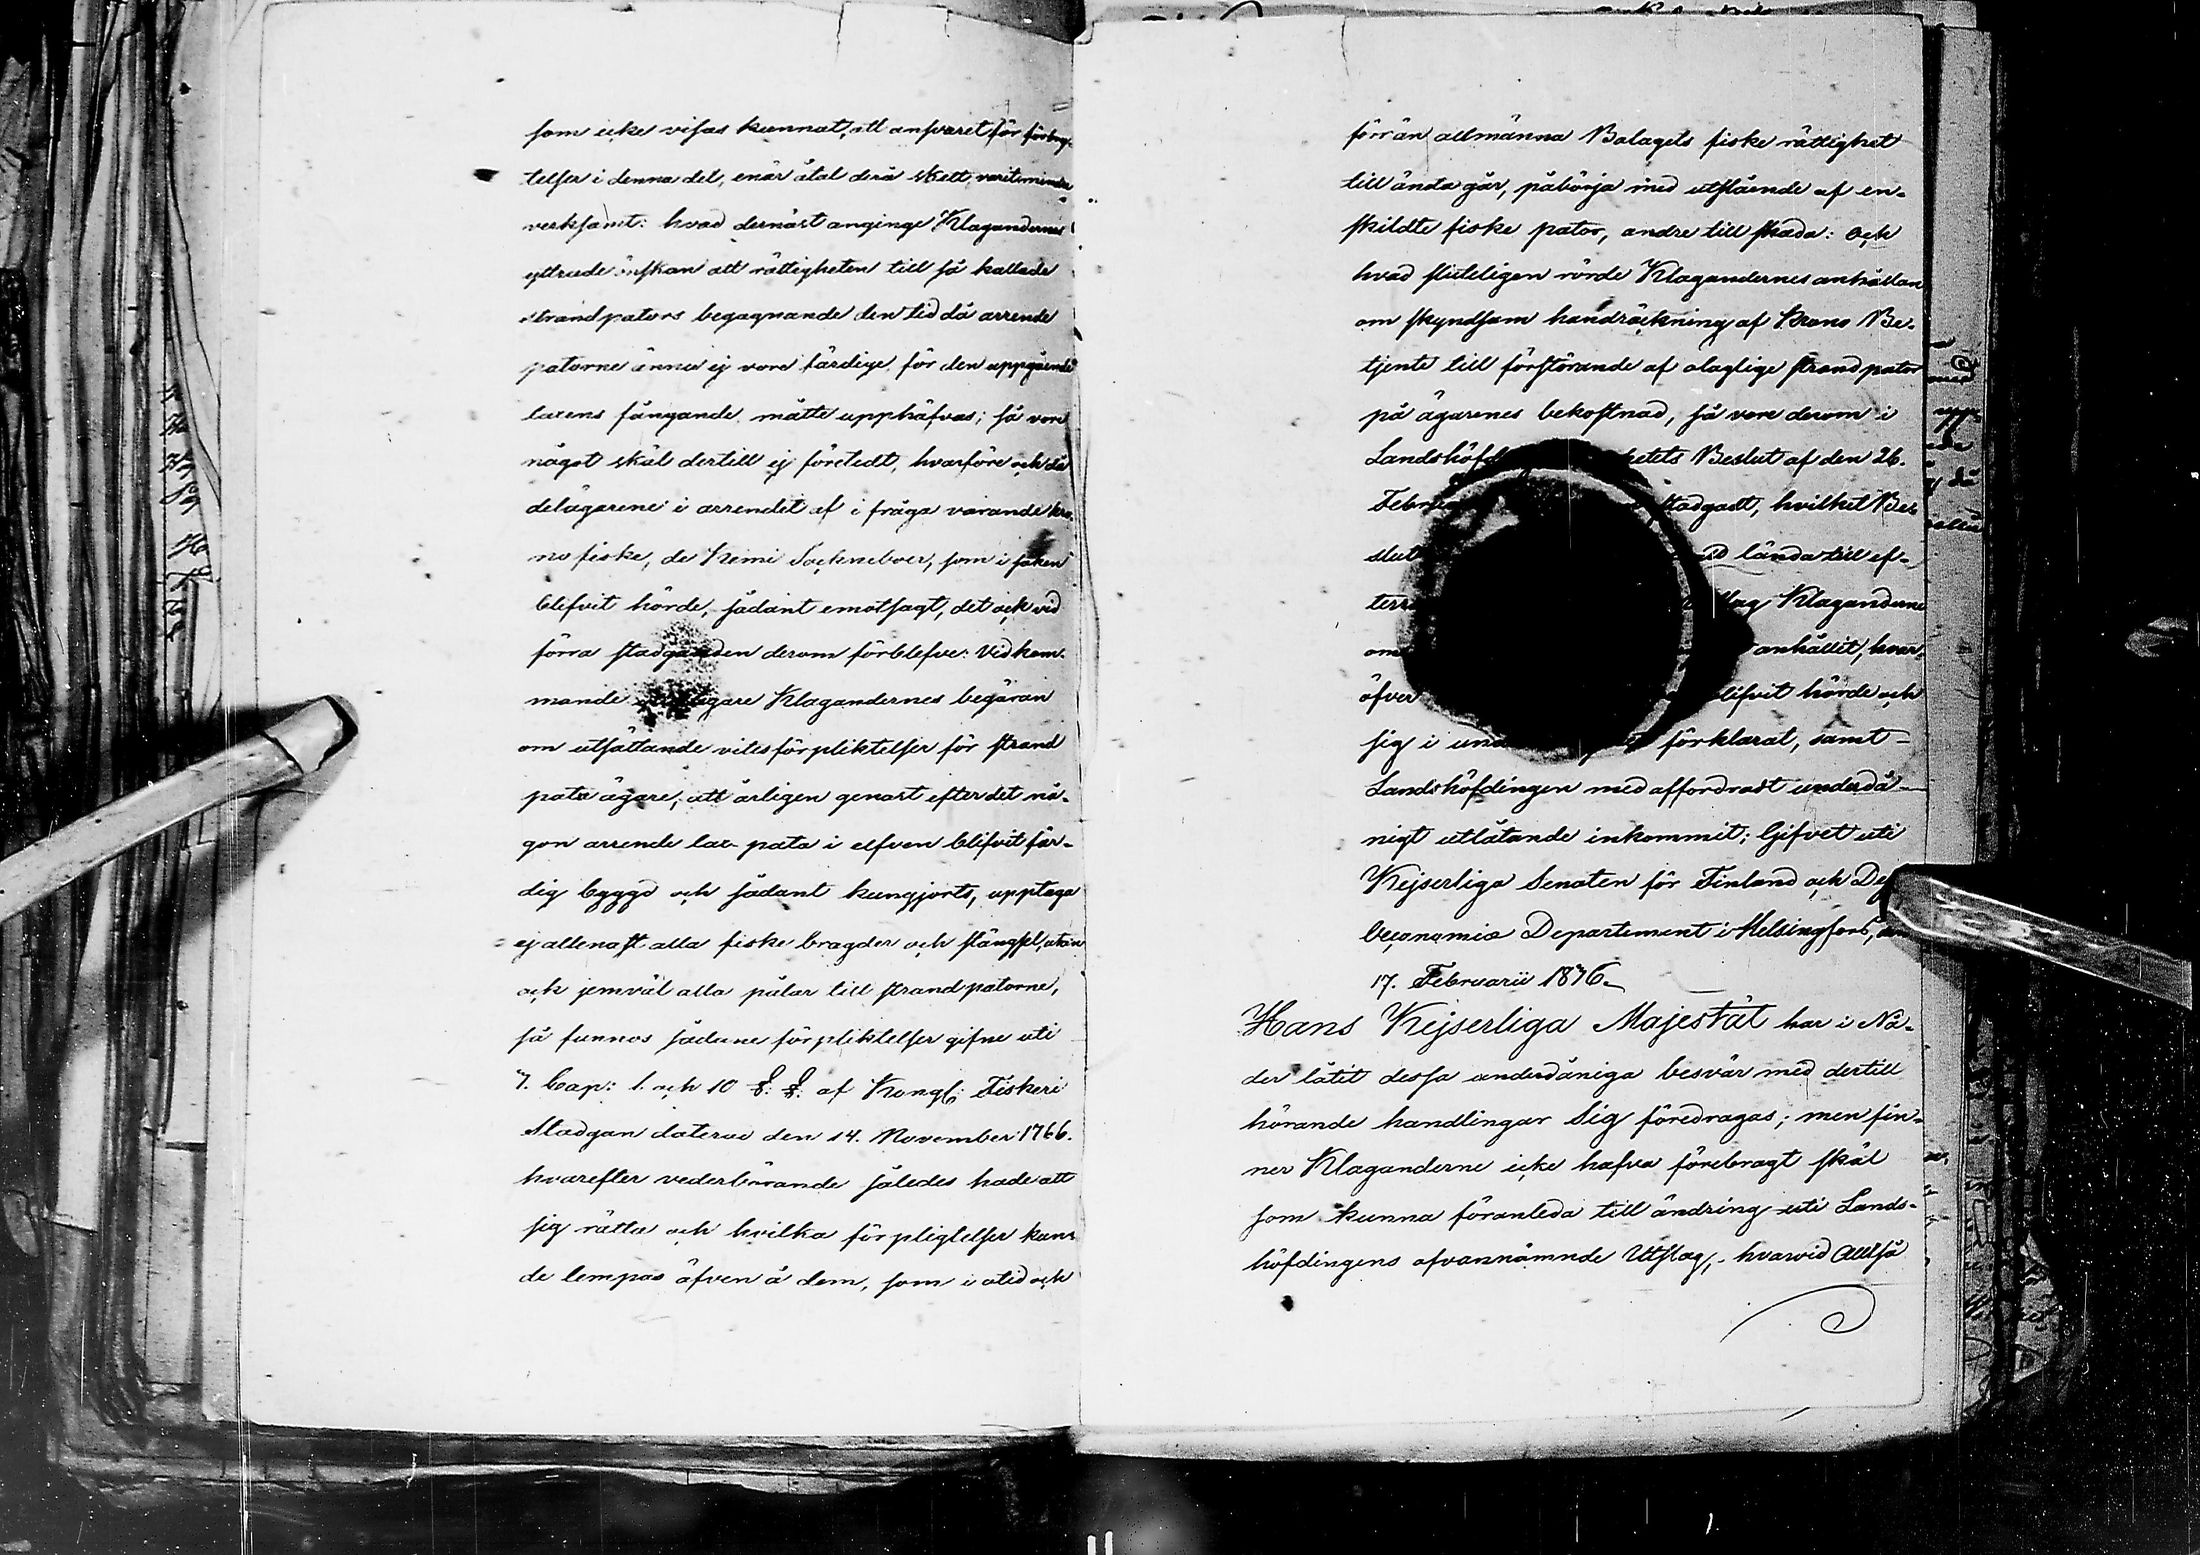 som icke visas kunnat, att ansvaret för förbry-
telser i denna del, enär åtal derå skett, varit mindre
verksamt: hvad dernäst anginge Klagandernes
yttrade önskan att rättigheten till så kallade
strandpators begagnande den tid då arrende
patorne ännu ej vore färdige för den uppgående
laxens fångande måtte upphäfvas; så vore
något skäl dertill ej företedt, hvarföre och då
delägarene i arrendet af i fråga varande kro-
no fiske, de Kemi Sockneboer, som i saken
blefvit hörde, sådant emotsagt, det ock vid
förra stadganden derom förblefve: Vedkom-
mande Klagandernes begäran
om utsättande vites förpliktelser för strand
pata ägare, att årligen genast efter det nå-
gon arrende lax pata i elfven blifvit fär-
dig byggd och sådant kungjorts, upptaga
ej allenast alla fiske bragder och stängsel, utan
ock jemväl alla pålar till strand patorne,
så funnos sådane förpliktelser gifne uti
7. Cap: 1. och 10 §. §. af Kongl: Fiskeri
Stadgan daterad den 14. November 1766.
hvarefter vederbörande således hade att
sig rätta och hvilka förpligtelser kun-
de lempas äfven å dem, som i otid och
förrän allmänna Bolagets fiske rättighet
till ända går, påbörja med utslående af en-
skildte fiske pator, andre till skada: Och
hvad sluteligen rörde Klagandernes anhållan
om skyndsam handräckning af Krono Be-
tjente till förstörande af olaglige strand pator
på ägarenes bekostnad, så vore derom i
Landshöfd hetets Beslut af den 26.
stadgadt, hvilket Be-
slut lända till ef-
ter Klaganderne
om anhållit, hvar-
öfver blifvit hörde och
sig i und förklarat, samt
Landshöfdingen med affordradt underdå-
nigt utlåtande inkommit; Gifvet uti
Kejserliga Senaten för Finland och Des
Oeconomie Departement i Helsingfors, den
17. Februarii 1836.
Hans Kejserliga Majestät har i Nå-
der låtit dessa underdåniga besvär med dertill
hörande handlingar Sig föredragas; men fin-
ner Klaganderne icke hafva förebragt skäl
som kunna föranleda till ändring uti Lands-
höfdingens ofvannämnde Utslag, hvarvid Alltså